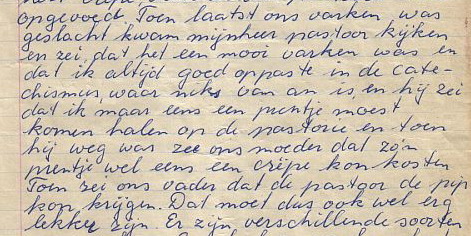 opgevoed. Toen laatst ons varken was
geslacht kwam mijnheer pastoor kijken
en zei, dat het een mooi varken was en
dat ik altijd goed oppaste in de cate-
chismus, waar niks van an is, en hij zei
dat ik maar eens een prentje moest
komen halen op de pastorie, en toen
hij weg was zee ons moeder dat zo'n
prentje wel eens een crêpe kon kosten
Toen zei ons vader dat de pastoor de pijp
kon krijgen. Dat moet dus ook wel erg
lekker zijn. Er zijn verschillende soorten